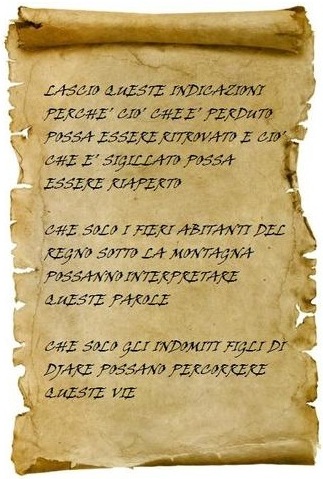 LASCIO QUESTE INDICAZIONI
PERCHE' CIO' CHE E' PERDUTO
POSSA ESSERE RITROVATO E CIO'
CHE E' SIGILLATO POSSA
ESSERE RIAPERTO
CHE SOLO I FIERI ABITANTI DEL
REGNO SOTTO LA MONTAGNA
POSSANNO INTERPRETARE
QUESTE PAROLE
CHE SOLO GLI INDOMITI FIGLI DI
DJARE POSSANO PERCORRERE
QUESTE VIE